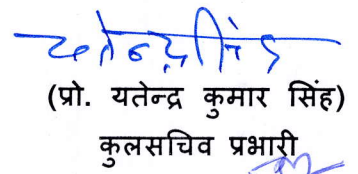 (प्रो. यतेन्द्र कुमार सिंह)
कुलसचिव प्रभारी